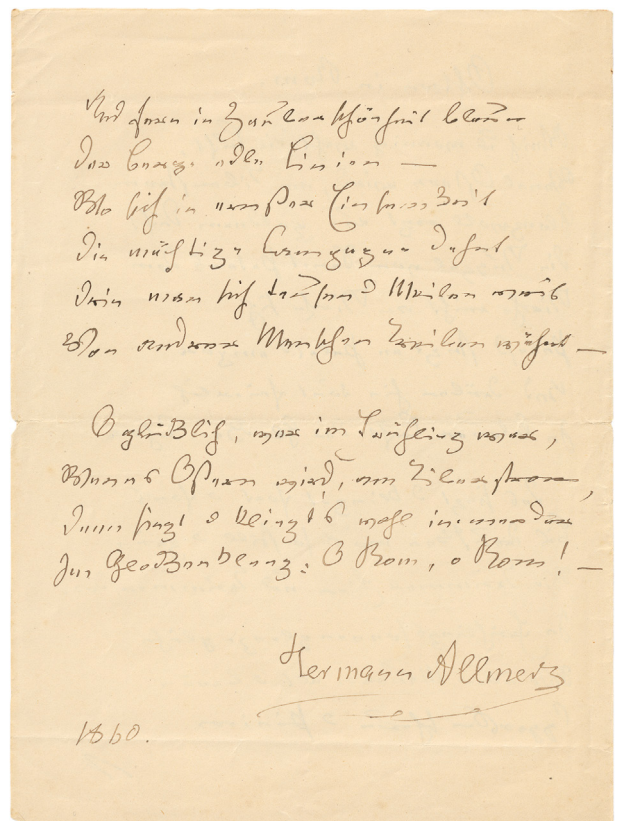 Und fern in Zauberschönheit blaun
Der Berge edle Linien —
Wo sich in ernster Einsamkeit
Die mächtige Campagna dehnt
Drin man sich tausend Meilen weit
Von andrer Menschen Treiben wähnt —
O glücklich, wer im Frühling war,
Wenns Ostern wird, am Tiberstrom,
Dem singt & klingt's wohl immerdar
Im Glockenklang: O Rom, o Rom! —
Hermann Allmers
1860.